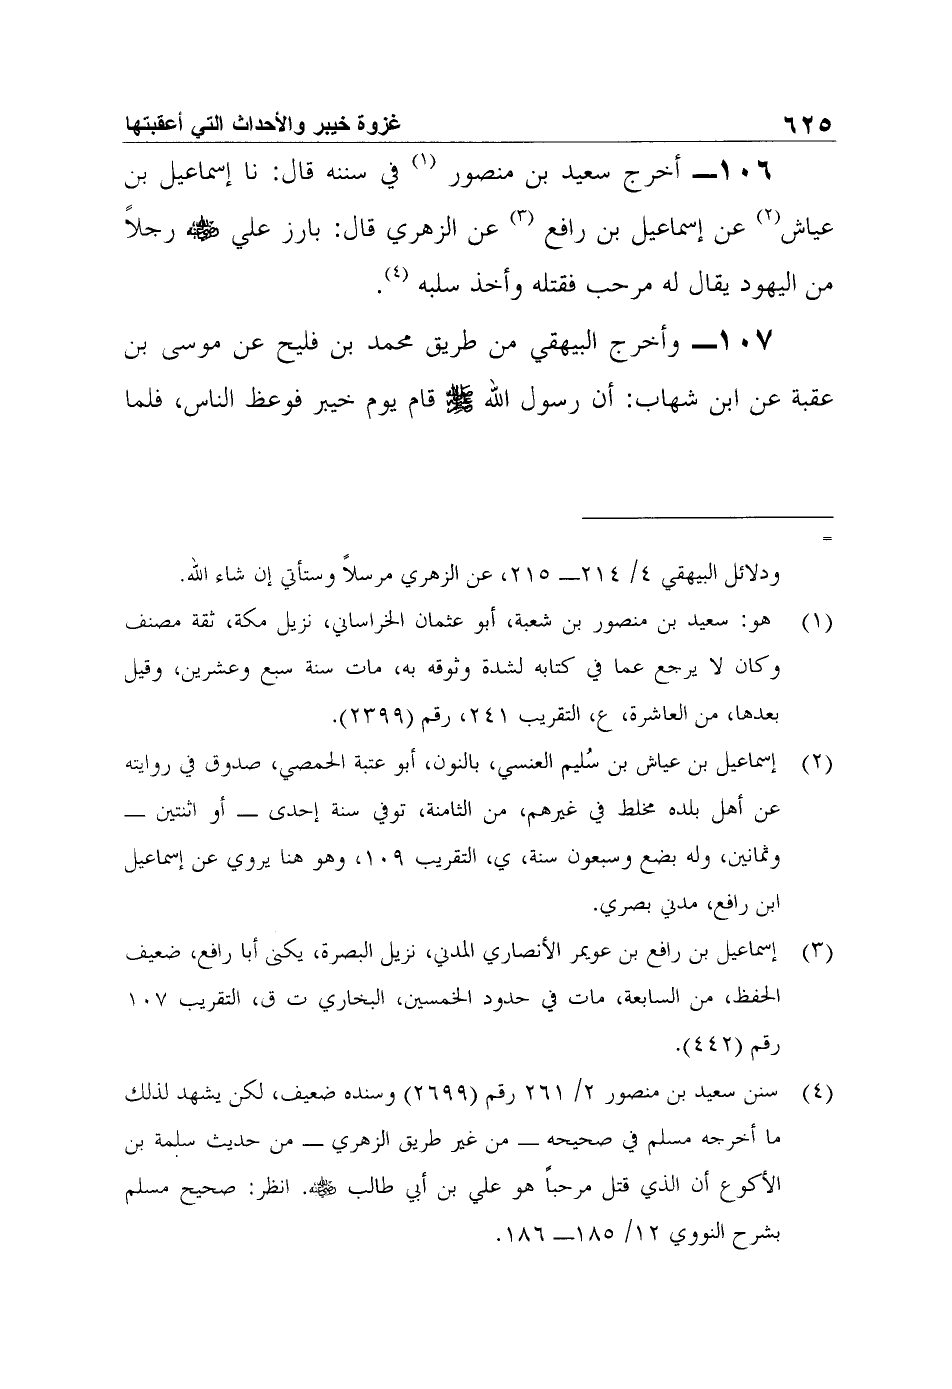 ٦٢٥ غزوة خيبر والأحداث التي أعقبتها
١٠٦ــ أخرج سعيد بن منصور (١) في سننه قال: نا إسماعيل بن
عياش(٢) عن إسماعيل بن رافع (٣) عن الزهري قال: بارز علي ﷺ رجلاً
من اليهود يقال له مرحب فقتله وأخذ سلبه (٤).
١٠٧ــ وأخرج البيهقي من طريق محمد بن فليح عن موسى بن
عقبة عن ابن شهاب: أن رسول الله ﷺ قام يوم خيبر فوعظ الناس، فلما
=
ودلائل البيهقي ٤/ ٢١٤ــ ٢١٥، عن الزهري مرسلاً وستأتي إن شاء الله.
(١) هو: سعيد بن منصور بن شعبة، أبو عثمان الخراساني، نزيل مكة، ثقة مصنف
وكان لا يرجع عما في كتابه لشدة وثوقه به، مات سنة سبع وعشرين، وقيل
بعدها، من العاشرة، ع، التقريب ٢٤١، رقم (٢٣٩٩).
(٢) إسماعيل بن عياش بن سُليم العنسي، بالنون، أبو عتبة الحمصي، صدوق في روايته
عن أهل بلده مخلط في غيرهم، من الثامنة، توفي سنة إحدى ــ أو اثنتين ــ
وثمانين، وله بضع وسبعون سنة، ي، التقريب ١٠٩، وهو هنا يروي عن إسماعيل
ابن رافع، مدني بصري.
(٣) إسماعيل بن رافع بن عويمر الأنصاري المدني، نزيل البصرة، يكنى أبا رافع، ضعيف
الحفظ، من السابعة، مات في حدود الخمسين، البخاري ت ق، التقريب ١٠٧
رقم (٤٤٢).
(٤) سنن سعيد بن منصور ٢/ ٢٦١ رقم (٢٦٩٩) وسنده ضعيف، لكن يشهد لذلك
ما أخرجه مسلم في صحيحه ــ من غير طريق الزهري ــ من حديث سلمة بن
الأكوع أن الذي قتل مرحباً هو علي بن أبي طالب ﷺ. انظر: صحيح مسلم
بشرح النووي ١٢/ ١٨٥ــ ١٨٦.